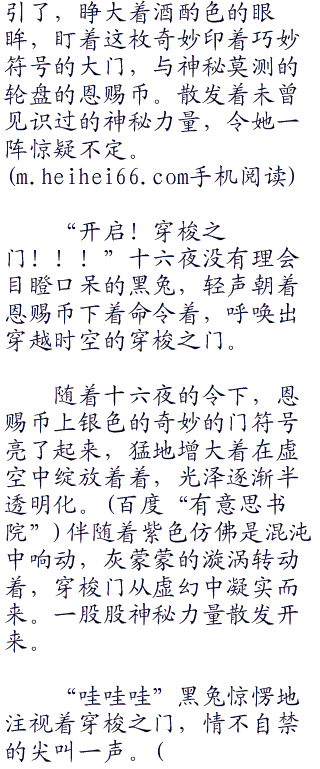 引了，睁大着酒酌色的眼
眸，盯着这枚奇妙印着巧妙
符号的大门，与神秘莫测的
轮盘的恩赐币。散发着未曾
见识过的神秘力量，令她一
阵惊疑不定。
(m.heihei66.com手机阅读)
“开启！穿梭之
门！！！”十六夜没有理会
目瞪口呆的黑兔，轻声朝着
恩赐币下着命令着，呼唤出
穿越时空的穿梭之门。
随着十六夜的令下，恩
赐币上银色的奇妙的门符号
亮了起来，猛地增大着在虚
空中绽放着着，光泽逐渐半
透明化。(百度“有意思书
院”)伴随着紫色仿佛是混沌
中响动，灰蒙蒙的漩涡转动
着，穿梭门从虚幻中凝实而
来。一股股神秘力量散发开
来。
“哇哇哇”黑兔惊愣地
注视着穿梭之门，情不自禁
的尖叫一声。(